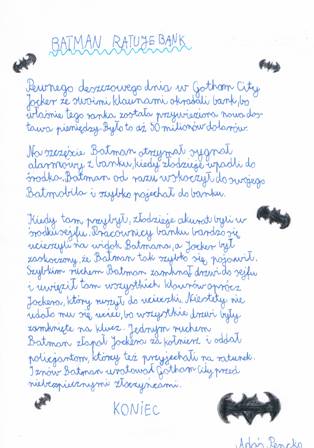 BATMAN RATUJE BANK
Pewnego deszczowego dnia w Gotham City
Jocker ze swoimi klawnami okradali bank, bo
właśnie tego ranka została przywieziona nowa dos-
tawa pieniędzy. Było to aż 50 milionów dolarów.
Na szczęście Batman otrzymał sygnał
alarmowy z banku, kiedy złodzieje wpadli do
środka. Batman od razu wskoczył do swojego
Batmobila i szybko pojechał do banku.
Kiedy tam przybył, złodzieje akurat byli w
środku sejfu. Pracownicy banku bardzo się
ucieszyli na widok Batmana, a Jocker był
zaskoczony, że Batman tak szybko się pojawił.
Szybkim ruchem Batman zamknął drzwi do sejfu
i uwięził tam wszystkich klawnów oprócz
Jockera, który ruszył do ucieczki. Niestety nie
udało mu się uciec, bo wszystkie drzwi były
zamknięte na klucz. Jednym ruchem
Batman złapał Jockera za kołnierz i oddał
policjantom, którzy też przyjechali na ratunek.
I znów Batman uratował Gotham City przed
niebezpiecznymi złoczyńcami.
KONIEC